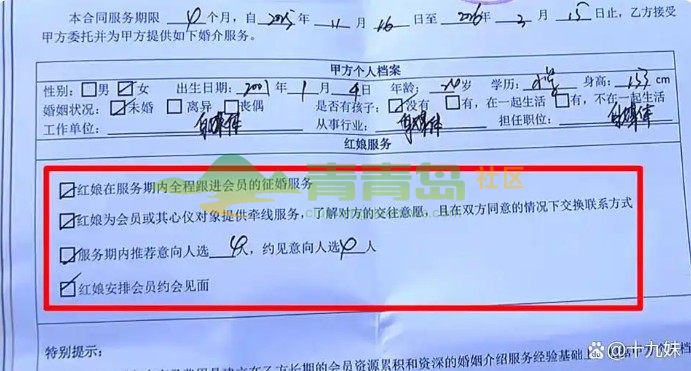 本合同服务期限 4 个月，自 2025 年 11 月 16 日至 2026 年 3 月 15 日止，乙方接受
甲方委托并为甲方提供如下婚介服务。
甲方个人档案
性别：□男 ☑女 出生日期：2001 年 1 月 4 日 年龄：24 岁 学历：大学 身高：153 cm
婚姻状况：☑未婚 □离异 □丧偶 是否有孩子：☑没有 □有，在一起生活 □有，不在一起生活
工作单位：自媒体 从事行业：自媒体 担任职位：自媒体
红娘服务
☑红娘在服务期内全程跟进会员的征婚服务
☑红娘为会员或其心仪对象提供牵线服务，了解对方的交往意愿，且在双方同意的情况下交换联系方式
☑服务期内推荐意向人选 4人，约见意向人选 4 人
☑红娘安排会员约会见面
青青岛社区
特别提示：
是建立在乙方长期的会员资源累积和资深的婚姻介绍服务经验基础上
@十九妹